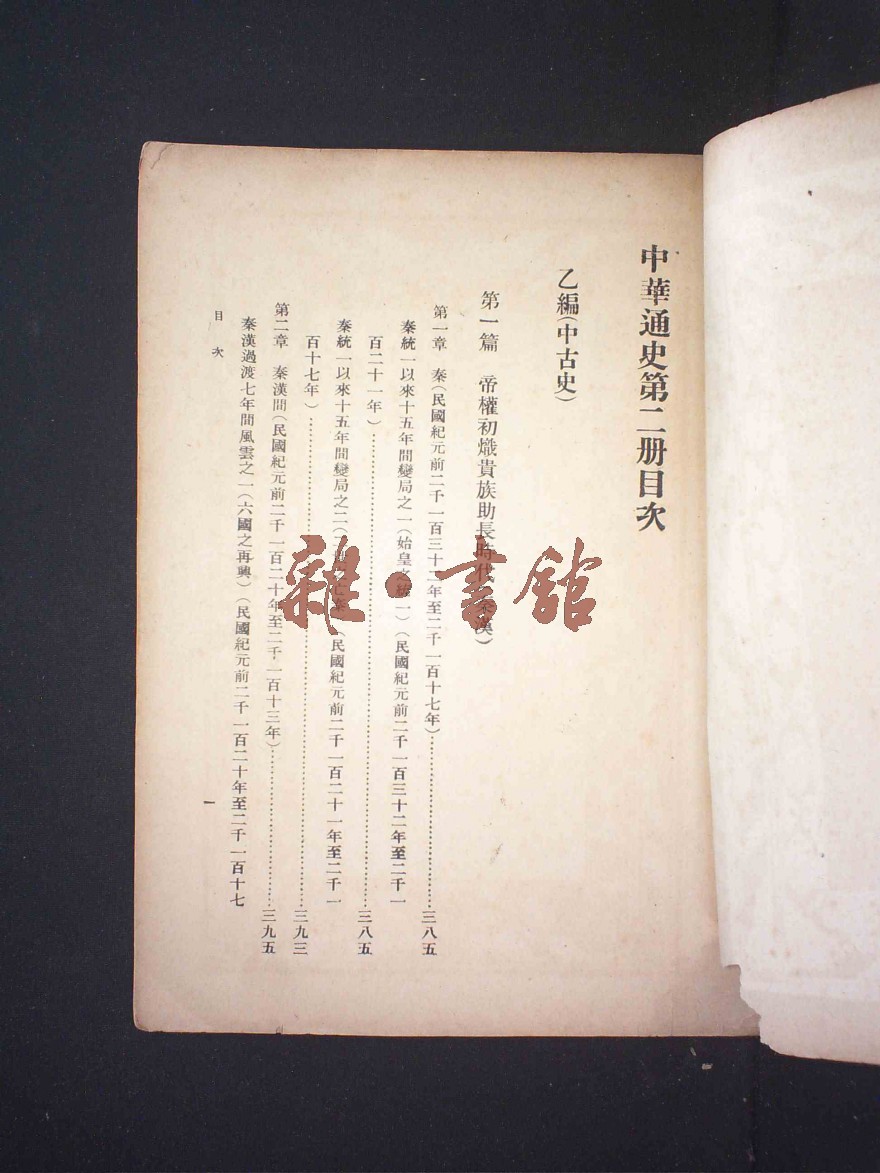 中華通史第二册目次
乙編(中古史)
第一篇 帝權初熾貴族助長時代(秦漢)
第一章 秦(民國紀元前二千一百三十二年至二千一百十七年)……三八五
秦統一以來十五年間變局之一(始皇之統一)(民國紀元前二千一百三十二年至二千一
百二十一年)……三八五
秦統一以來十五年間變局之二(亡秦)(民國紀元前二千一百二十一年至二千一
百十七年)……三九三
第二章 秦漢間(民國紀元前二千一百二十年至二千一百十三年)……三九五
秦漢過渡七年間風雲之一(六國之再興)(民國紀元前二千一百二十年至二千一百十七
目次
一
雜·書館